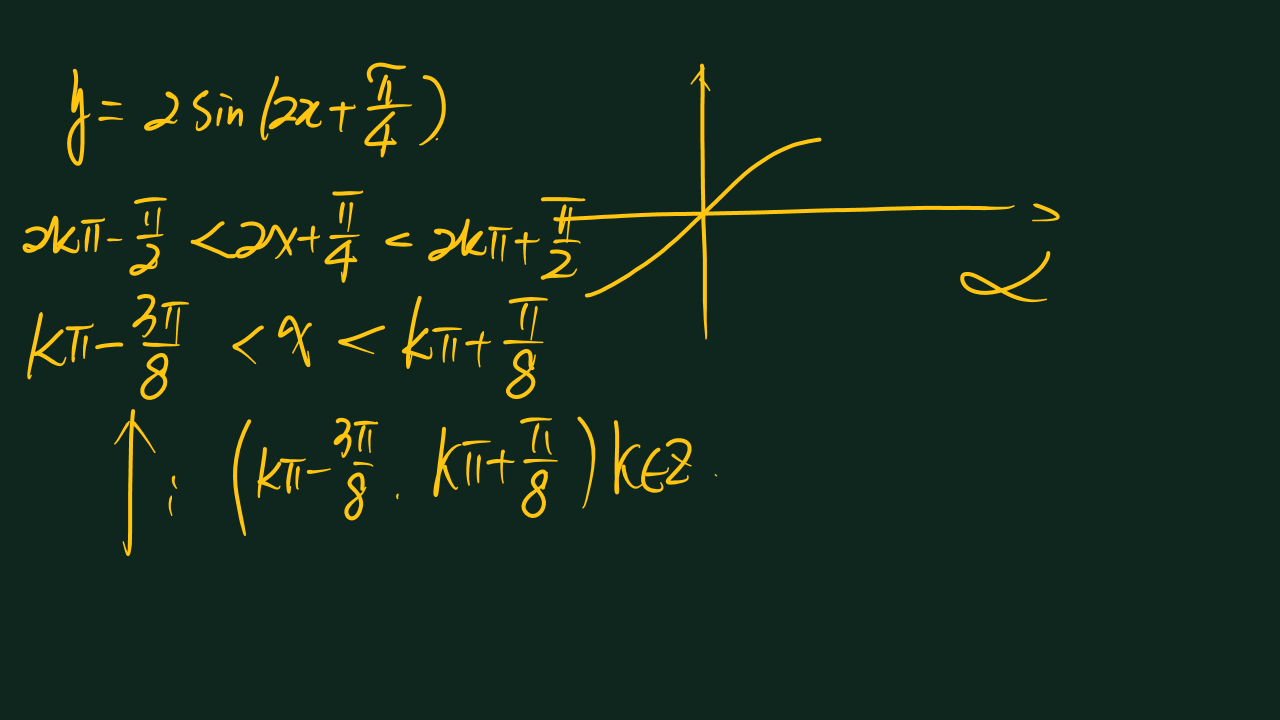 y = 2 sin (2x + π/4)
2kπ - π/2 < 2x + π/4 < 2kπ + π/2
kπ - 3π/8 < x < kπ + π/8
↑ : (kπ - 3π/8 . kπ + π/8) k∈Z .
α